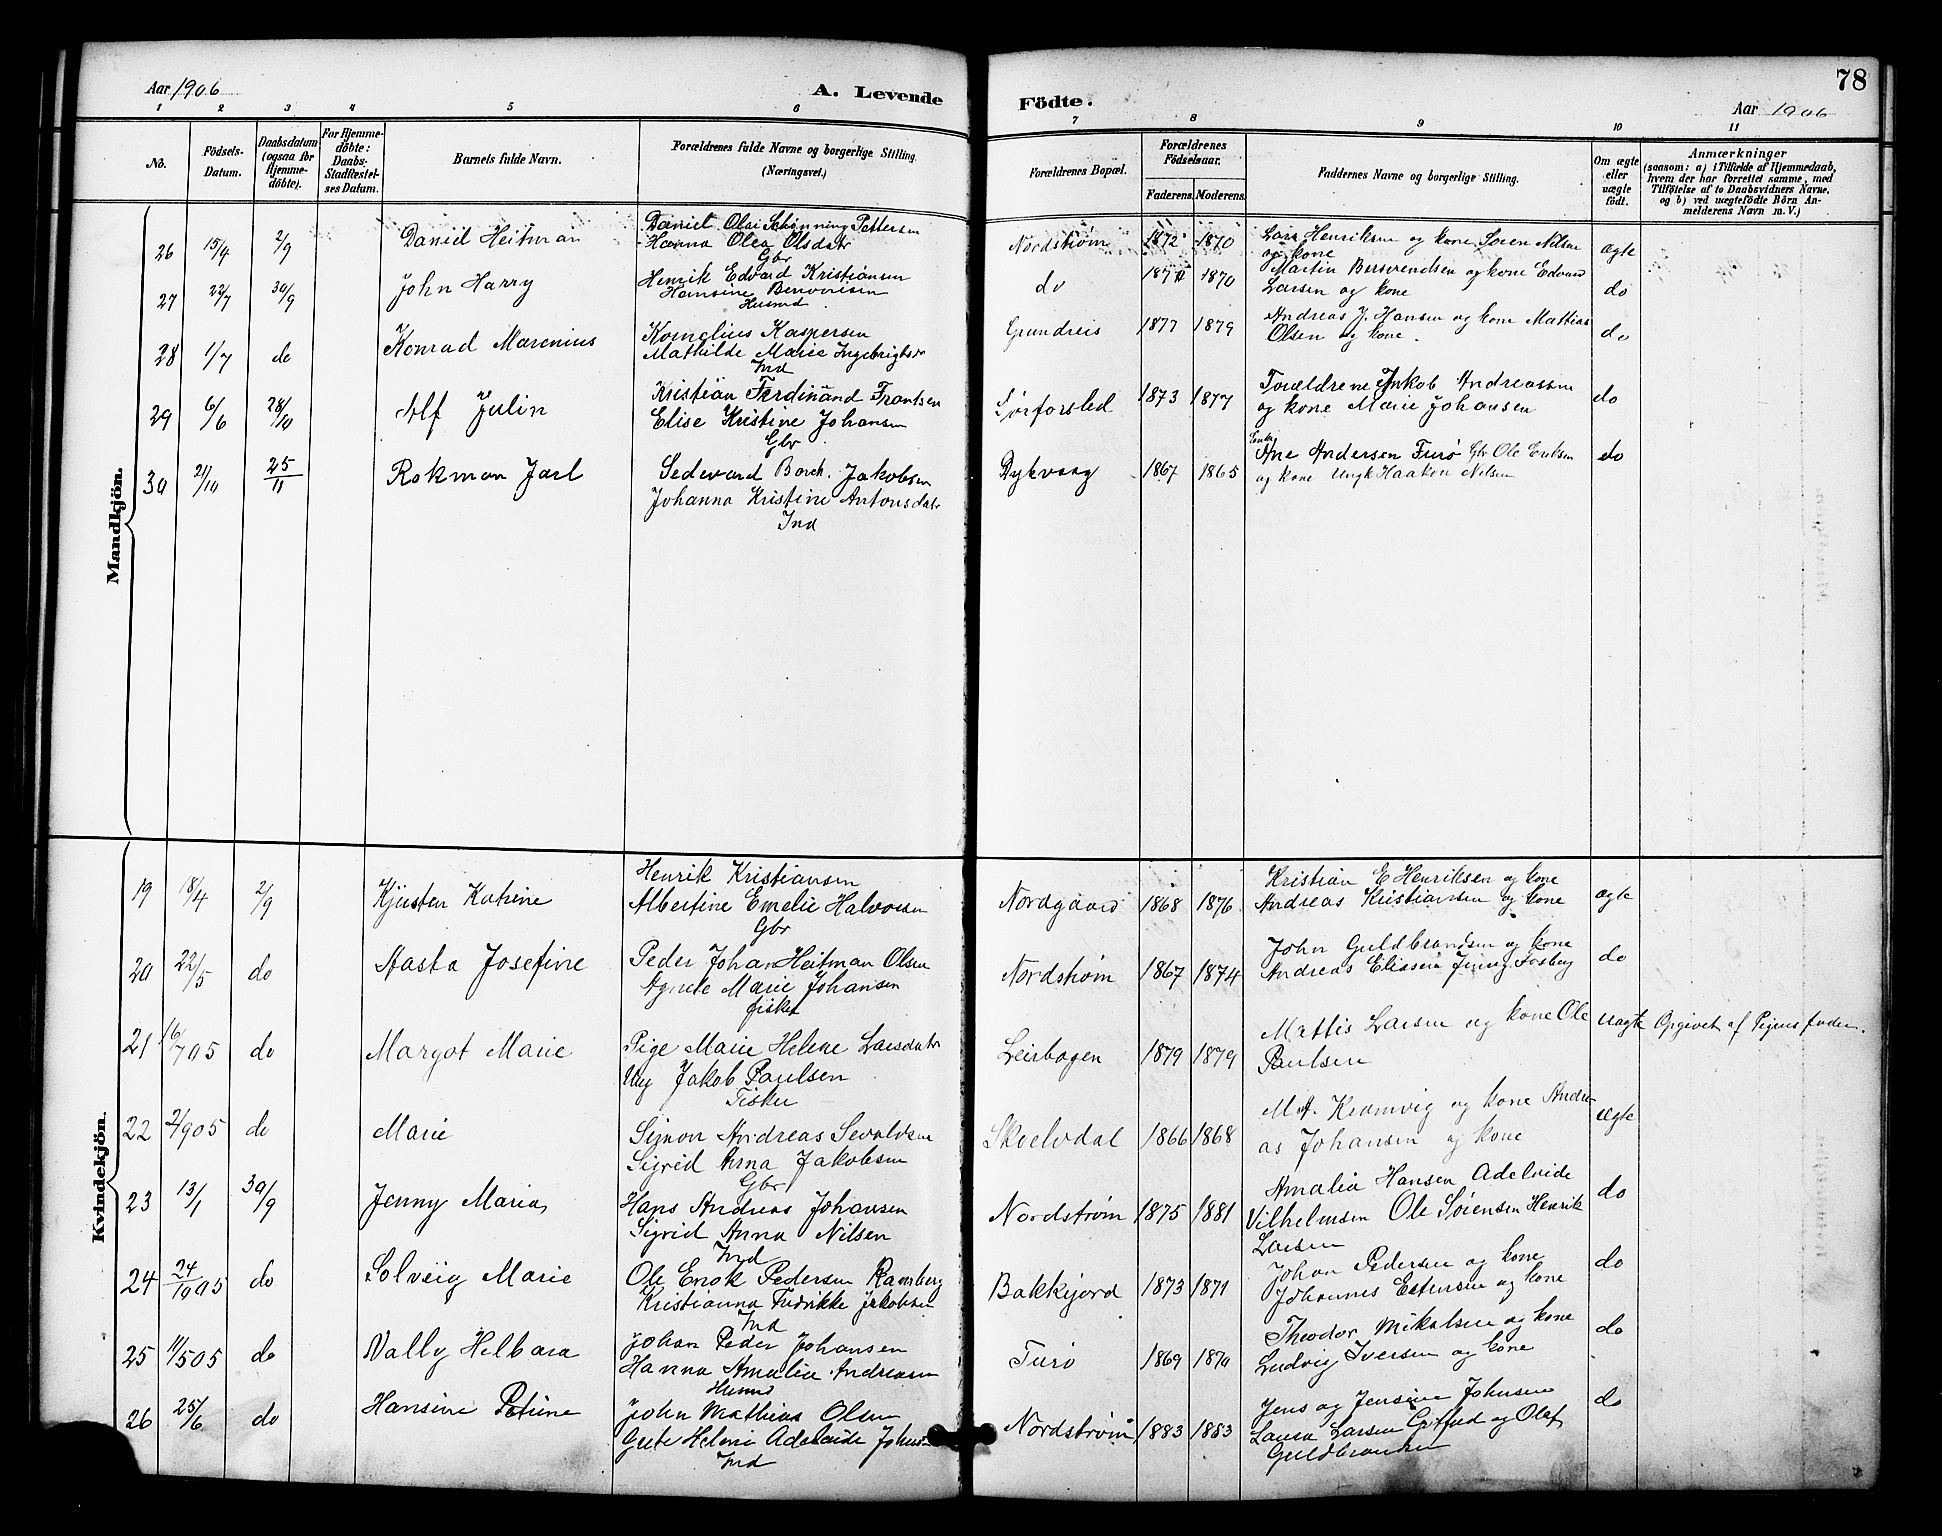 Aar 1906
A. Levende
Födte.
78
Aar 1906
1 2 3 4 5 6 7 8 9 10 11
No.
Födsels-
Datum.
Daabsdatum
(ogsaa for
Hjemme-
döbte).
For Hjemme-
döbte:
Daabs-
Stadfæstel-
ses Datum.
Barnets fulde Navn.
Forældrenes fulde Navne og borgerlige Stilling.
(Næringsvei.)
Forældrenes Bopæl.
Forældrenes
Födselsaar.
Faderens. Moderens.
Faddernes Navne og borgerlige Stilling.
Om ægte
eller
uægte
födt.
Anmærkninger
(saasom: a) i Tilfælde af Hjemmedaab,
hvem der har forrettet samme, med
Tilföielse af to Daabsvidners Navne,
og b) ved uægtefödte Börn An-
melderens Navn m. V.)
Mandkjön.
26 15/4 2/9 Daniel Heitman
Daniel Olai Schönning Pettersen
Hanna Olea Olsdatr
Gbr
Nordstrøm 1872 1870
Lars Henriksen og kone Søren Nilsen
og kone
ægte
27 22/7 30/9 John Harry
Henrik Edvard Kristiansen
Hansine
Husmd
do 1870
Martin og kone Edvard
Larsen og kone
do
28 1/7 do Konrad Marenius
Kornelius Kaspersen
Mathilde Marie Ingebrigtsdr
Ind
Grundreis 1877 1879
Andreas J. Hansen og kone Mattias
Olsen og kone.
do
29 6/6 28/10 Alf Julin
Kristian Ferdinand Frantsen
Elise Kristine Johansen
Gbr
Sørforsled 1873 1877
Forældrene Jakob Andreassen
og kone Marie Johansen
do
30 21/10 25/11 Rokman Jarl
Sedevard Borch. Jakobsen
Johanna Kristine Antonsdatr
Ind
Dykvaag 1867 1865
Enke
Ane Andersen Furø Gbr Ole Eriksen
og kone Ungk Haakon Nilsen
do
Kvindekjön.
19 18/4 2/9 Kjersten Katrine
Henrik Kristiansen
Albertine Emelie Halvorsen
Gbr
Nordgaard 1868 1876
Kristian E Henriksen og kone
Andreas Kristiansen og kone
ægte
20 22/5 do Aasta Josefine
Peder Johan Heitman Olsen
Agnete Marie Johansen
fisker
Nordstrøm 1867 1874
John Guldbrandsen og kone
Andreas Eliassen Jenny Fosbag
do
21 16/7 05 do Margot Marie
Pige Marie Helene Larsdatr
Ung Jakob Paulsen
Fisker
Leirbogen 1879 1879
Mattis Larsen og kone Ole
Paulsen
uægte Opgivet af Pigens fader.
22 2/9 05 do Marie
Simon Andreas Sevaldsen
Sigrid Anna Jakobsen
Gbr
Skoelvdal 1866 1868
M. A. Kramvig og kone Andre-
as Johansen og kone
Ægte
23 13/1 30/9 Jenny Maria
Hans Andreas Johansen
Sigrid Anna Nilsen
Ind
Nordstrøm 1875 1881
Amalia Hansen Adelvide
Vilhelmsen Ole Sørensen Henrik
Larsen
do
24 24/9 05 do Solveig Marie
Ole Enok Pedersen Ramberg
Kristianna Fredrikke Jakobsen
Ind
Bakkejord 1873 1871
Johan Pedersen og kone
Johannes Estensen og kone
do
25 11/5 05 do Vally Helbara
Johan Peder Johansen
Hanna Amalia Andreasen
Husmd
Furø 1869 1870
Theodor Mikalsen og kone
Ludvig Iversen og kone
do
26 25/6 do Hansine Petrine
John Mathias Olsen
Helene Adelaide
Ind
Nordstrøm 1883 1883
Jens og Jensine Johnsen
Laura Larsen og Olaf
Guldbrandsen
do